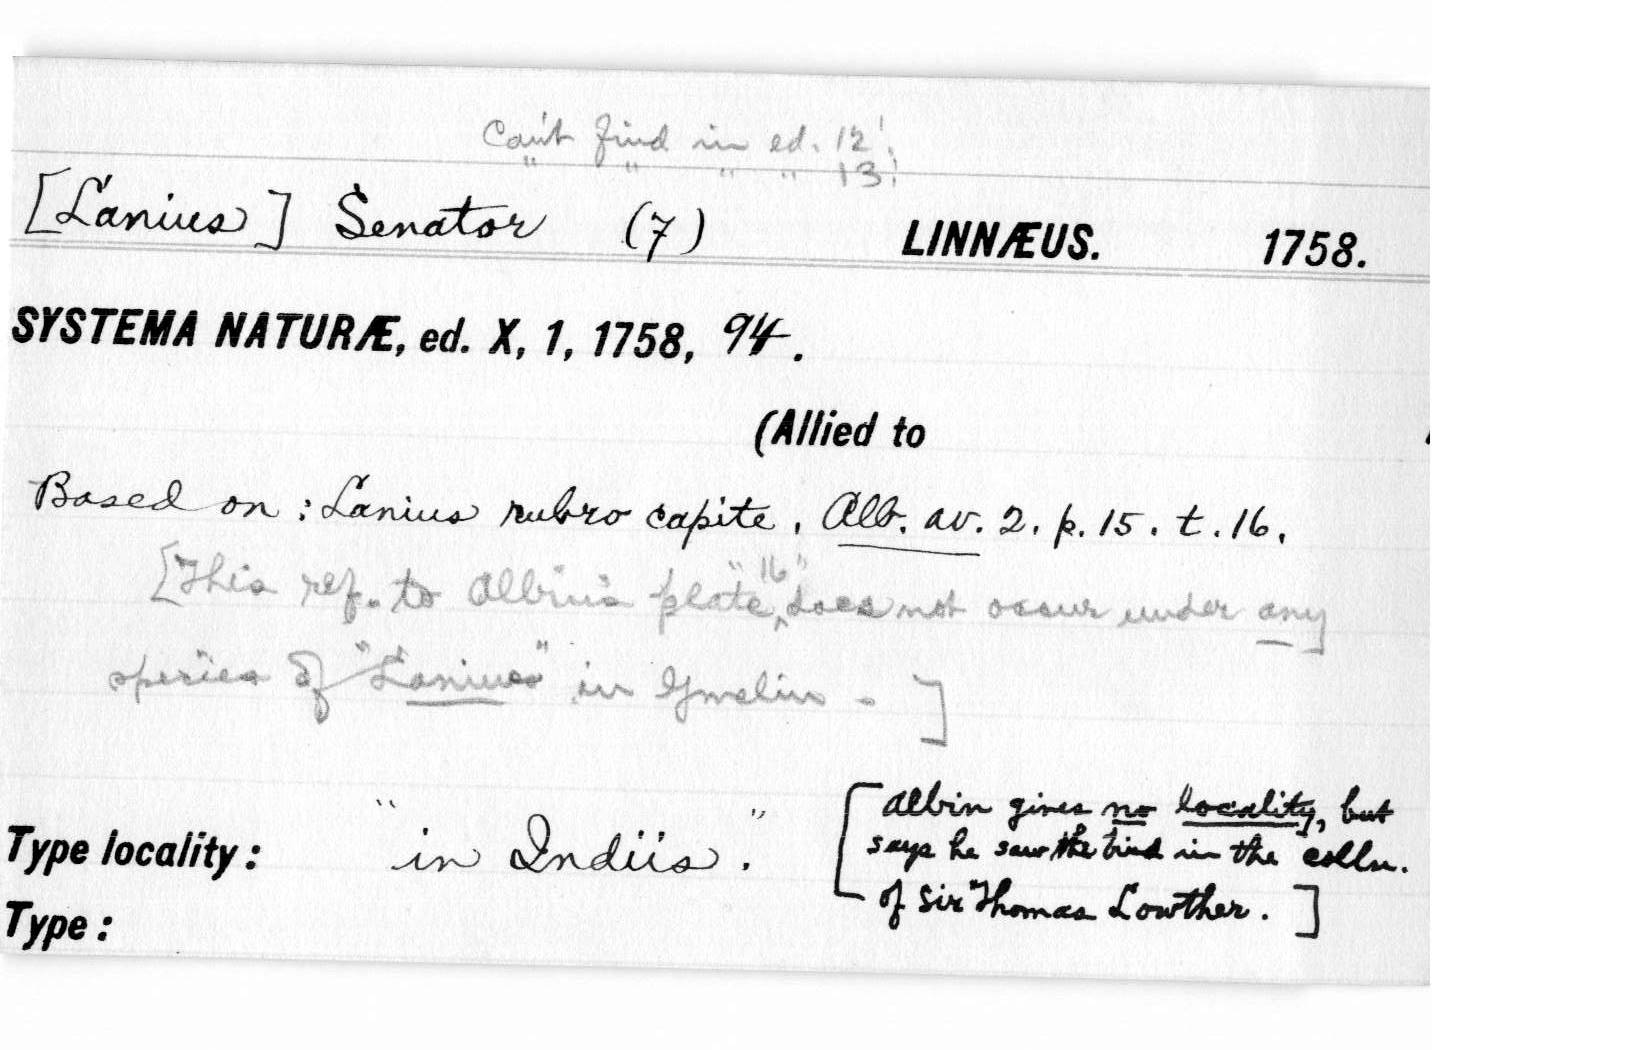 Can't find in ed. 12!
" " " " 13!
[Lanius] Senator (7) LINNÆUS. 1758.
SYSTEMA NATURÆ, ed. X, 1, 1758, 94.
(Allied to
Based on : Lanius rubro capite, Alb. av. 2. p. 15. t. 16.
[This ref. to Albin's plate "16" does not occur under any
species of "Lanius" in Gmelin - ]
Type locality: "in Indiis." [Albin gives no locality, but
says he saw the bird in the colln.
of Sir Thomas Lowther.]
Type: